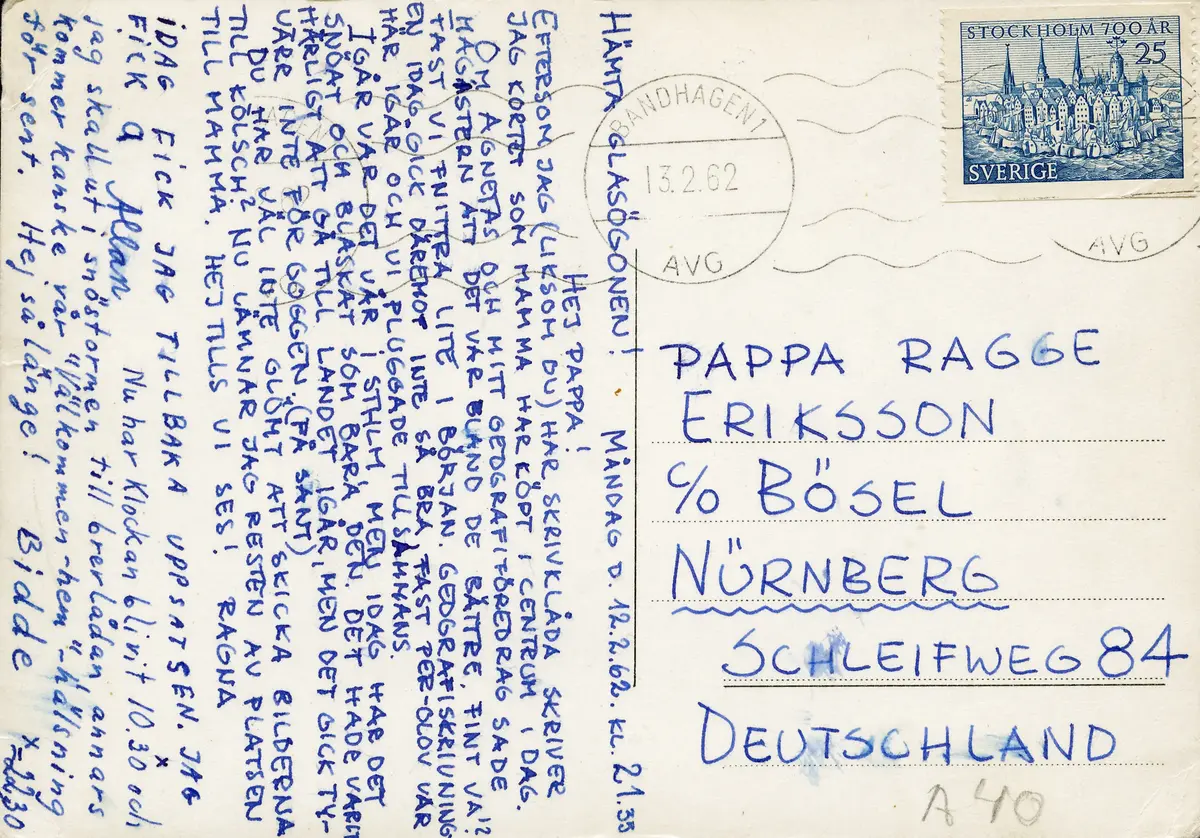 HÄMTA GLASÖGONEN! MÅNDAG D. 12.2.62. KL. 21.35
HEJ PAPPA!
EFTERSOM JAG (LIKSOM DU) HAR SKRIVKLÅDA SKRIVER
JAG KORTET SOM MAMMA HAR KÖPT I CENTRUM I DAG.
OM AGNETAS OCH MITT GEOGRAFIFÖREDRAG SADE
MAGISTERN ATT DET VAR BLAND DE BÄTTRE. FINT VA'?
FAST VI FNITTRA LITE I BÖRJAN. GEOGRAFISKRIVNING-
EN IDAG GICK DÄREMOT INTE SÅ BRA FAST PER-OLOV VAR
HÄR IGÅR OCH VI PLUGGADE TILLSAMMANS.
IGÅR VAR DET VÅR I STHLM, MEN IDAG HAR DET
SNÖAT OCH BLÅSKAT SOM BARA DEN. DET HADE VARIT
HÄRLIGT ATT GÅ TILL LANDET IGÅR, MEN DET GICK TY-
VÄRR INTE FÖR GOGGEN. (PÅ SANT)
DU HAR VÄL INTE GLÖMT ATT SKICKA BILDERNA
TILL KÖLSCH? NU LÄMNAR JAG RESTEN AV PLATSEN
TILL MAMMA. HEJ TILLS VI SES! RAGNA
IDAG FICK JAG TILLBAKA UPPSATSEN. JAG
FICK a
Allan Nu har klockan blivit 10.30 x och
jag skall ut i snöstormen till brevlådan annars
kommer kanske vår "Välkommen-hem"-hälsning
för sent. Hej så länge! Bidde x = 22,30
STOCKHOLM 700 ÅR
25
SVERIGE
BANDHAGEN 1
13.2.62
AVG
AVG
PAPPA RAGGE
ERIKSSON
c/o BÖSEL
NÜRNBERG
SCHLEIFWEG 84
DEUTSCHLAND
A 40